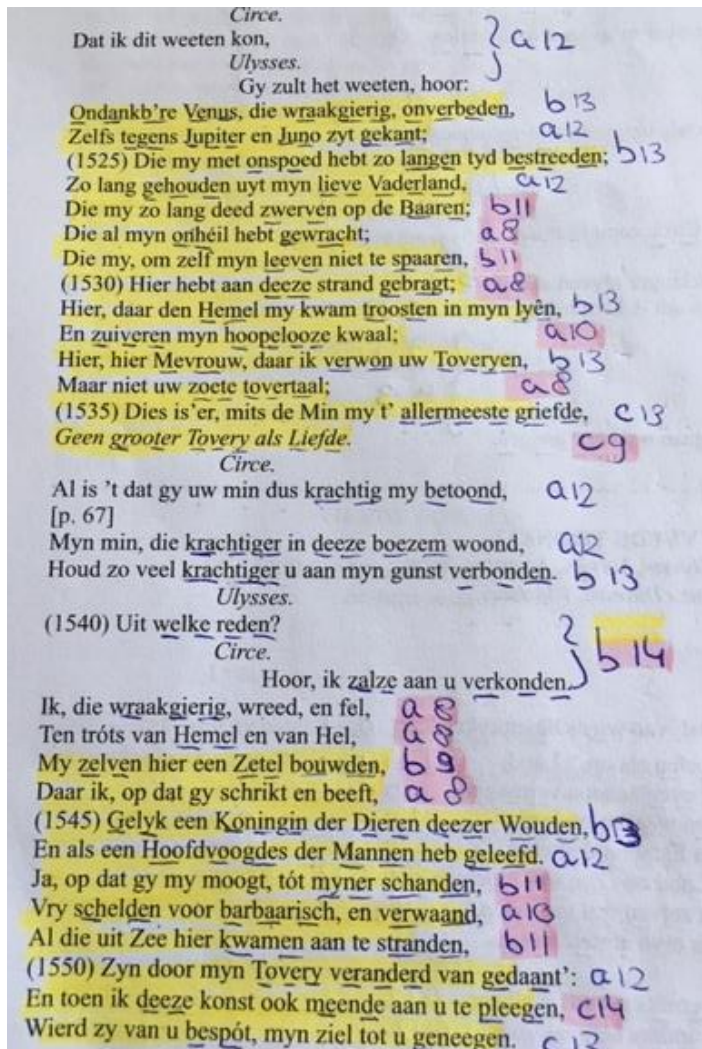 Circe.
Dat ik dit weeten kon, a 12
Ulysses.
Gy zult het weeten, hoor:
Ondankb're Venus, die wraakgierig, onverbeden, b 13
Zelfs tegens Jupiter en Juno zyt gekant; a12
(1525) Die my met onspoed hebt zo langen tyd bestreeden; b13
Zo lang gehouden uyt myn lieve Vaderland, a12
Die my zo lang deed zwerven op de Baaren; b11
Die al myn onhéil hebt gewracht; a8
Die my, om zelf myn leeven niet te spaaren, b11
(1530) Hier hebt aan deeze strand gebragt; a8
Hier, daar den Hemel my kwam troosten in myn lyên, b13
En zuiveren myn hoopelooze kwaal; a10
Hier, hier Mevrouw, daar ik verwon uw Toveryen, b13
Maar niet uw zoete tovertaal; a8
(1535) Dies is'er, mits de Min my t' allermeeste griefde, c13
Geen grooter Tovery als Liefde. c9
Circe.
Al is 't dat gy uw min dus krachtig my betoond, a12
[p. 67]
Myn min, die krachtiger in deeze boezem woond, a12
Houd zo veel krachtiger u aan myn gunst verbonden. b 13
Ulysses.
(1540) Uit welke reden?
Circe. b14
Hoor, ik zalze aan u verkonden.
Ik, die wraakgierig, wreed, en fel, a8
Ten tróts van Hemel en van Hel, a8
My zelven hier een Zetel bouwden, b9
Daar ik, op dat gy schrikt en beeft, a 8
(1545) Gelyk een Koningin der Dieren deezer Wouden, b13
En als een Hoofdvoogdes der Mannen heb geleefd. a12
Ja, op dat gy my moogt, tót myner schanden, b11
Vry schelden voor barbaarisch, en verwaand, a10
Al die uit Zee hier kwamen aan te stranden, b11
(1550) Zyn door myn Tovery veranderd van gedaant': a12
En toen ik deeze konst ook meende aan u te pleegen, c14
Wierd zy van u bespót, myn ziel tot u geneegen. c 13